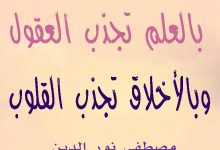 بالعلم تجذب العقول
وبالأخلاق تجذب القلوب
مصطفى نور الدين